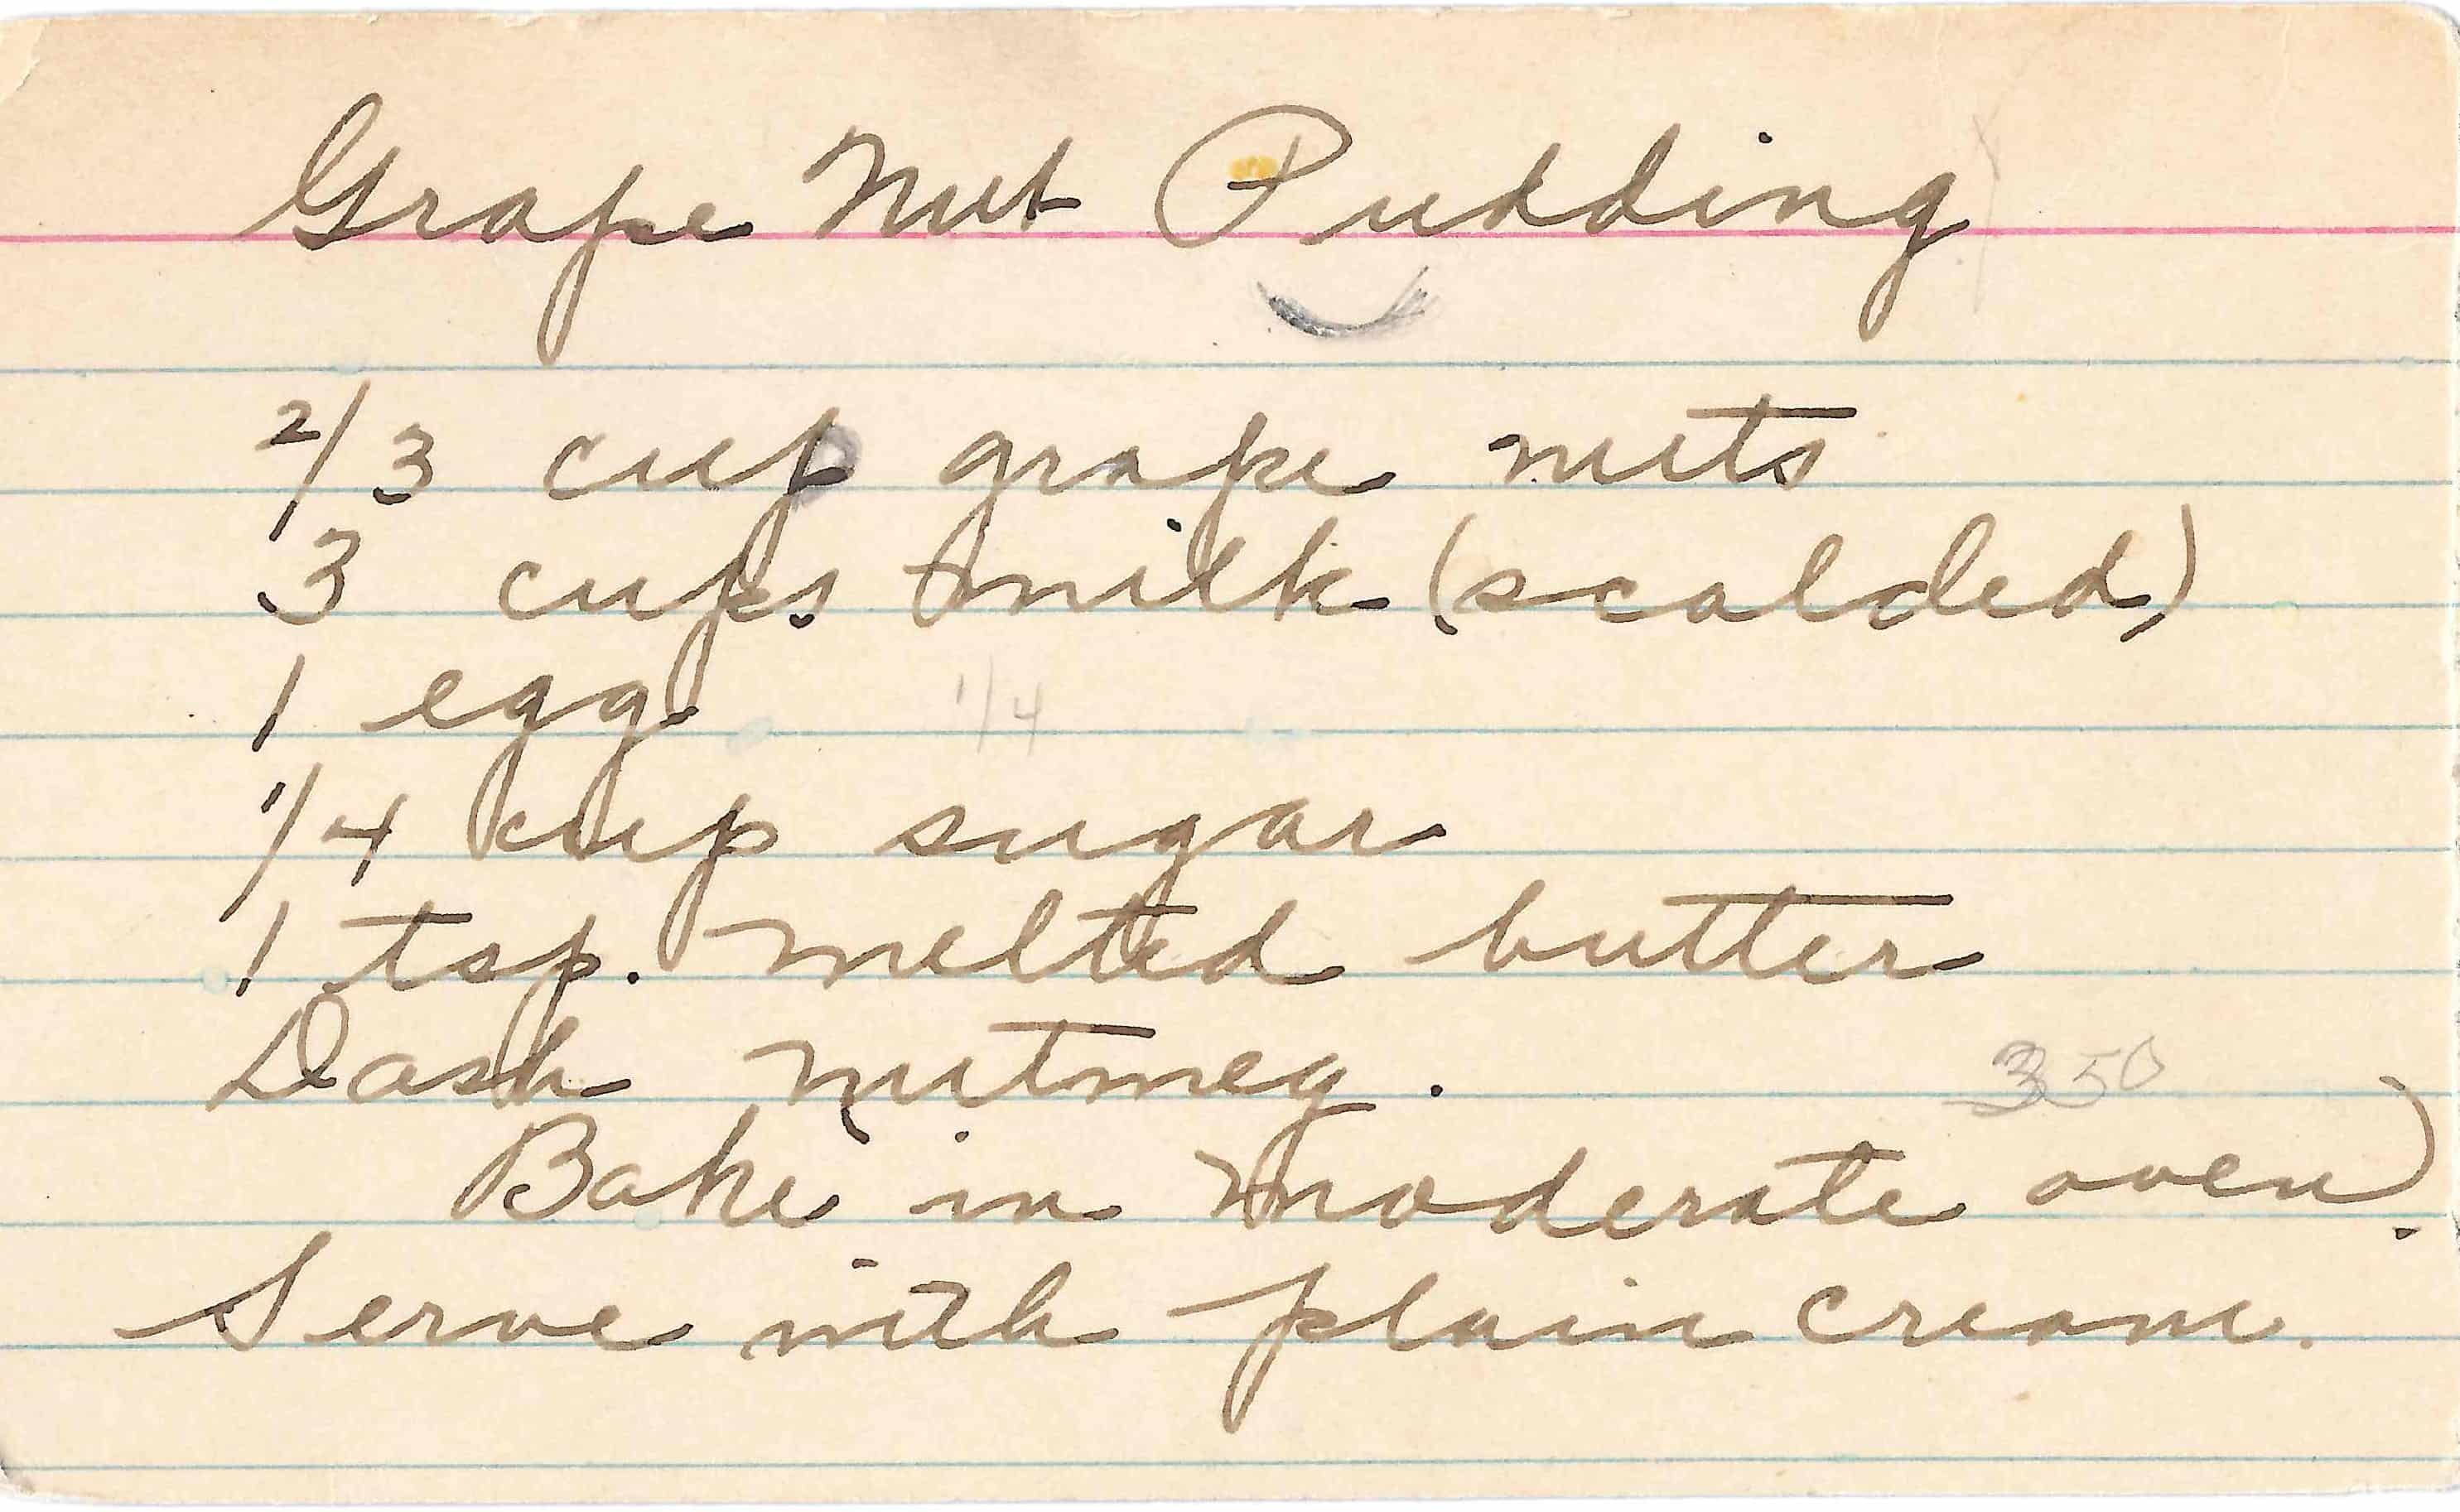 Grape Nut Pudding
2/3 cup grape nuts
3 cups milk (scalded)
1 egg 1/4
1/4 cup sugar
1 tsp. melted butter
Dash nutmeg.
350
Bake in moderate oven.
Serve with plain cream.